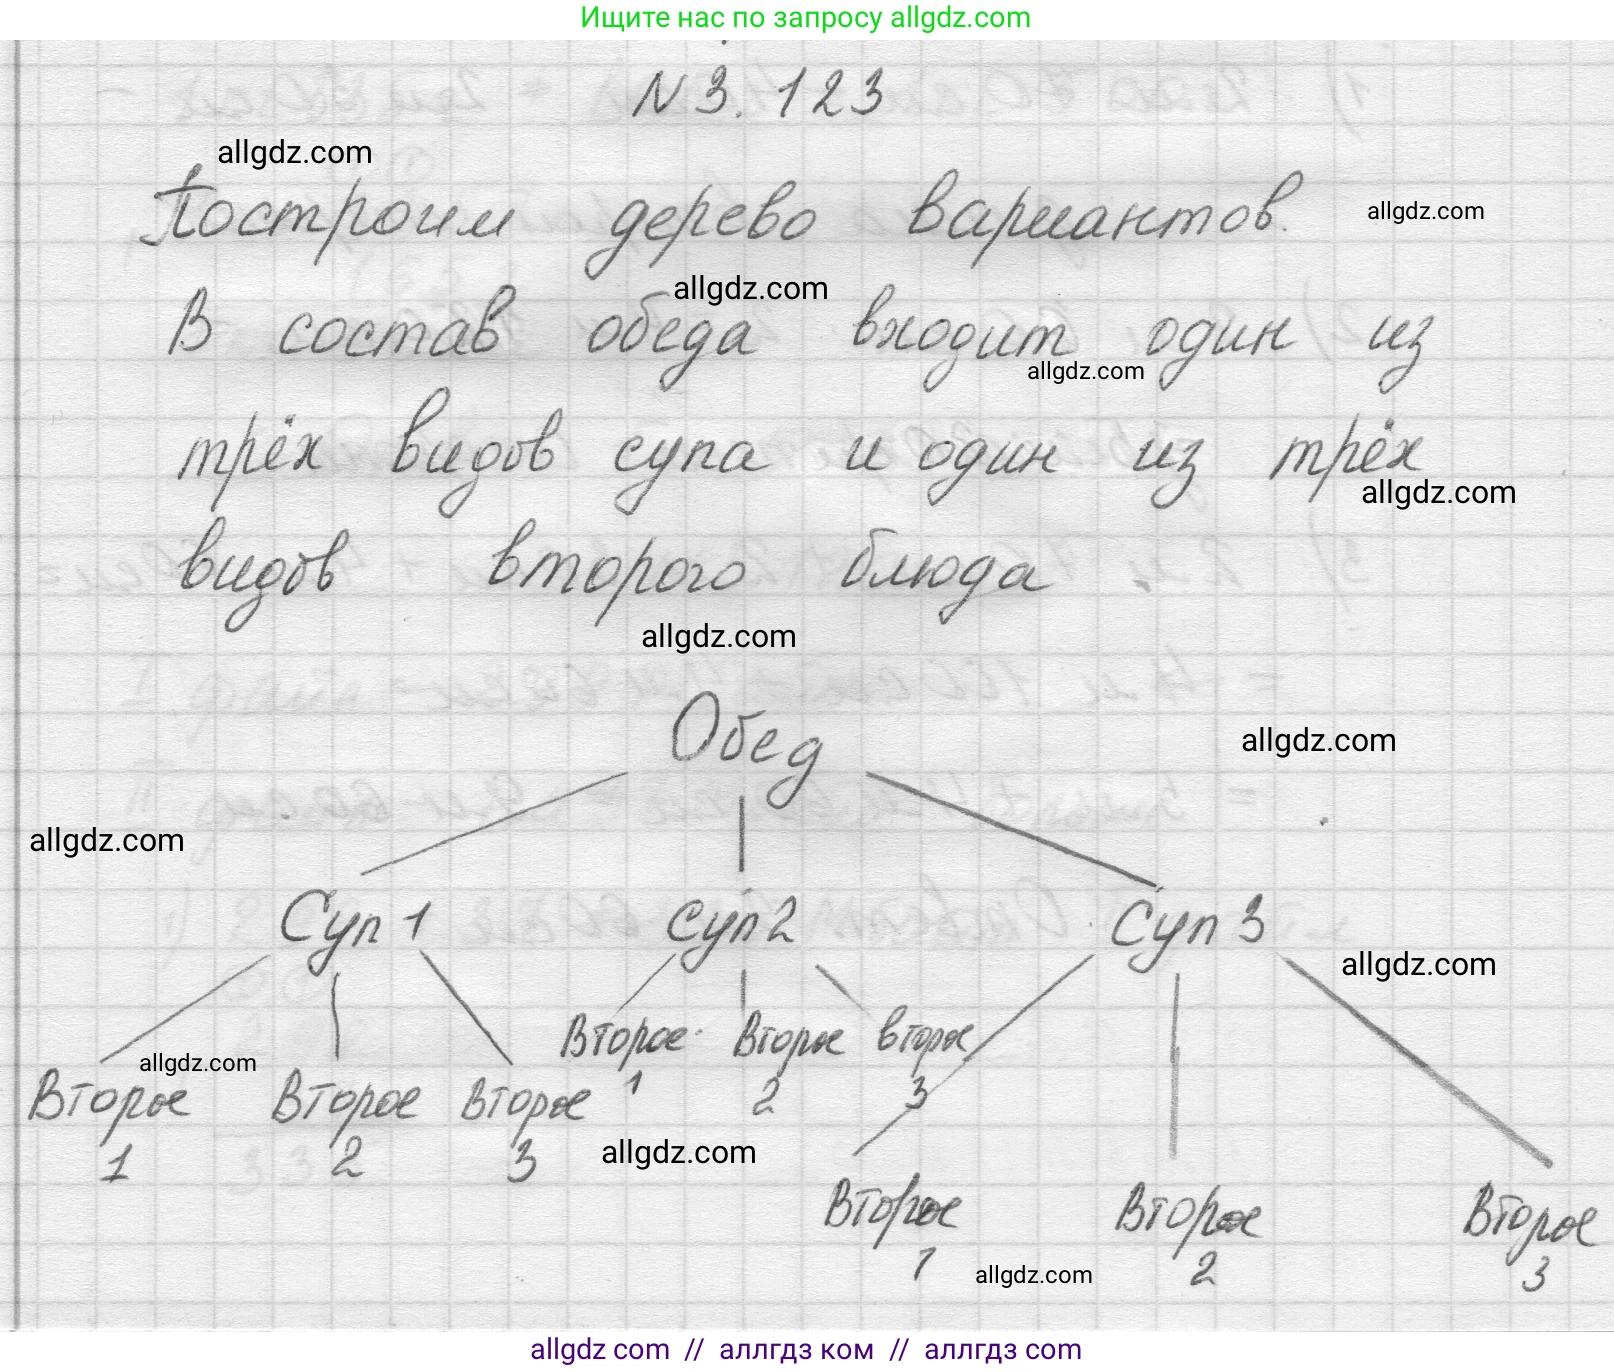 Ищите нас по запросу allgdz.com
N 3.123
allgdz.com
Построим дерево вариантов.
allgdz.com
allgdz.com
В состав обеда входит один из
allgdz.com
трёх видов супа и один из трёх
allgdz.com
видов второго блюда.
allgdz.com
Обед
allgdz.com
allgdz.com
Суп 1 Суп 2 Суп 3
allgdz.com
Второе 1 Второе 2 Второе 3
allgdz.com
Второе 1 Второе 2 Второе 3
allgdz.com
Второе 1 Второе 2 Второе 3
allgdz.com
allgdz com // аллгдз ком // аллгдз com